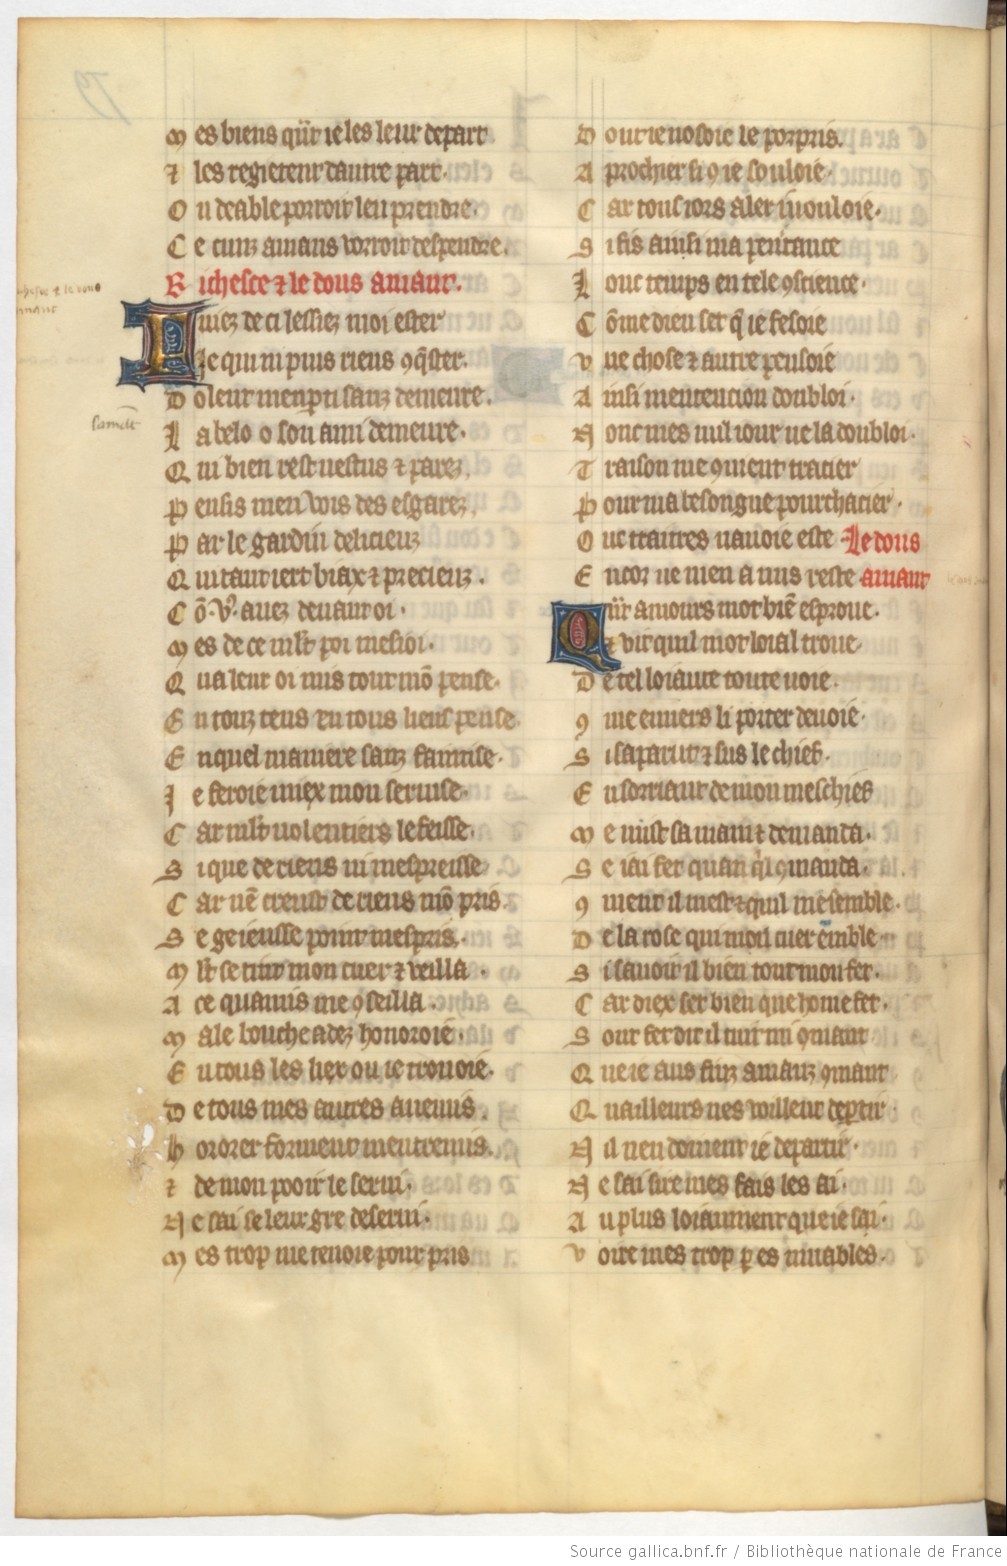 M es biens qnt ie les leur depart
⁊ les regietent dautre part.
O u deable porroit len prendre.
C e cunz amans vorroit despendre.
R ichesce ⁊ le dous amant.
D iuez de ci lessiez moi ester
J e qui ni puis riens 9q̃ster.
D olenz men parti sanz demeure.
L a bele o son ami demeure.
Q ui bien rest vestus ⁊ parez.
P ensis men vois des esgarez.
P ar le gardin delicieuz
Q ui tant iert biax ⁊ precieuz.
C õ v9 auez deuant oi.
M es de ce mlt poi mesioi.
Q ua leur oi mis tout mõ pense.
E n touz tens en tous lieus pense
E n quel maniere sanz faintise.
J e feroie miex mon seruise.
C ar mlt uolentiers le feisse.
S i que de riens ni mespreisse
C ar nẽ creust de riens mõ pris.
S e geieusse point mespris.
M lt se tint mon cuer ⁊ veilla.
A ce quamis me 9seilla.
M ale bouche adez honoroie.
E n tous les liex ou ie trouoie.
D e tous mes autres anemis.
H onorer forment mentremis.
⁊ de mon pooir le serui.
N e sai se leur gre deserui.
M es trop me tenoie pour pris
D ont ie nosoie le porpris.
A prochier si 9 ie souloie.
C ar tous iors aler i uouloie.
S i fis ainsi ma penitance
L onc temps en tele 9science.
C õme dieu set q̃ ie fesoie
V ne chose ⁊ autre pensoie
A insi mentencion doubloi.
N onc mes nul iour ne la doubloi.
T raison me 9uient tracier
P our ma besongne pourchacier.
O nc traitres nauoie este Le dous
E ncor ne men a nus reste amant
Q nt amours mot biẽ esproue.
⁊ vit quil mot loial troue
D e tel loiaute toute uoie.
9 me enuers li porter deuoie.
S i saparut ⁊ sus le chief.
E n sorriant de mon meschief
M e mist sa main ⁊ demanda.
S e iai fet quan quil 9manda.
9 ment il mest ⁊ quil me semble.
D e la rose qui mon cuer ẽmble
S i sauoit il bien tout mon fet.
C ar diex set bien que home fet.
S ont fet dit il tuit mi 9mant
Q ue ie aus fins amanz 9mant
Q uailleurs nes vueilleur depertir
N il nen doiuent ia departir.
N e sai sire mes fais les ai.
A u plus loiaument que ie sai.
V oire mes trop p es muables.